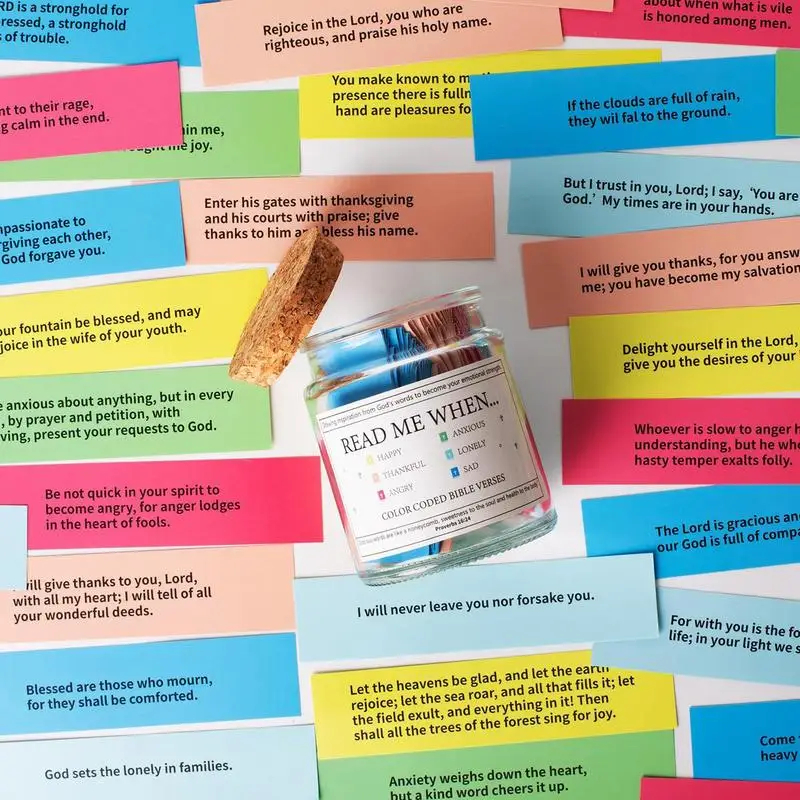 RD is a stronghold for
ressed, a stronghold
s of trouble.
Rejoice in the Lord, you who are
righteous, and praise his holy name.
about when what is vile
is honored among men.
nt to their rage,
g calm in the end.
in me,
me joy.
You make known to m
presence there is fulln
hand are pleasures fo
If the clouds are full of rain,
they wil fal to the ground.
Enter his gates with thanksgiving
and his courts with praise; give
thanks to him an bless his name.
But I trust in you, Lord; I say, ‘You are
God.’ My times are in your hands.
mpassionate to
rgiving each other,
God forgave you.
I will give you thanks, for you answ
me; you have become my salvation
our fountain be blessed, and may
joice in the wife of your youth.
Delight yourself in the Lord,
give you the desires of your
e anxious about anything, but in every
, by prayer and petition, with
ving, present your requests to God.
Whoever is slow to anger h
understanding, but he who
hasty temper exalts folly.
inspiration from God's words to become your emotional strength
READ ME WHEN...
HAPPY
ANXIOUS
THANKFUL
LONELY
ANGRY
SAD
COLOR CODED BIBLE VERSES
words are like a honeycomb, sweetness to the soul and health to the body
Proverbs 16:24
Be not quick in your spirit to
become angry, for anger lodges
in the heart of fools.
The Lord is gracious an
our God is full of compa
will give thanks to you, Lord,
with all my heart; I will tell of all
your wonderful deeds.
I will never leave you nor forsake you.
For with you is the fo
life; in your light we s
Blessed are those who mourn,
for they shall be comforted.
Let the heavens be glad, and let the earth
rejoice; let the sea roar, and all that fills it; let
the field exult, and everything in it! Then
shall all the trees of the forest sing for joy.
Come
heavy
God sets the lonely in families.
Anxiety weighs down the heart,
but a kind word cheers it up.